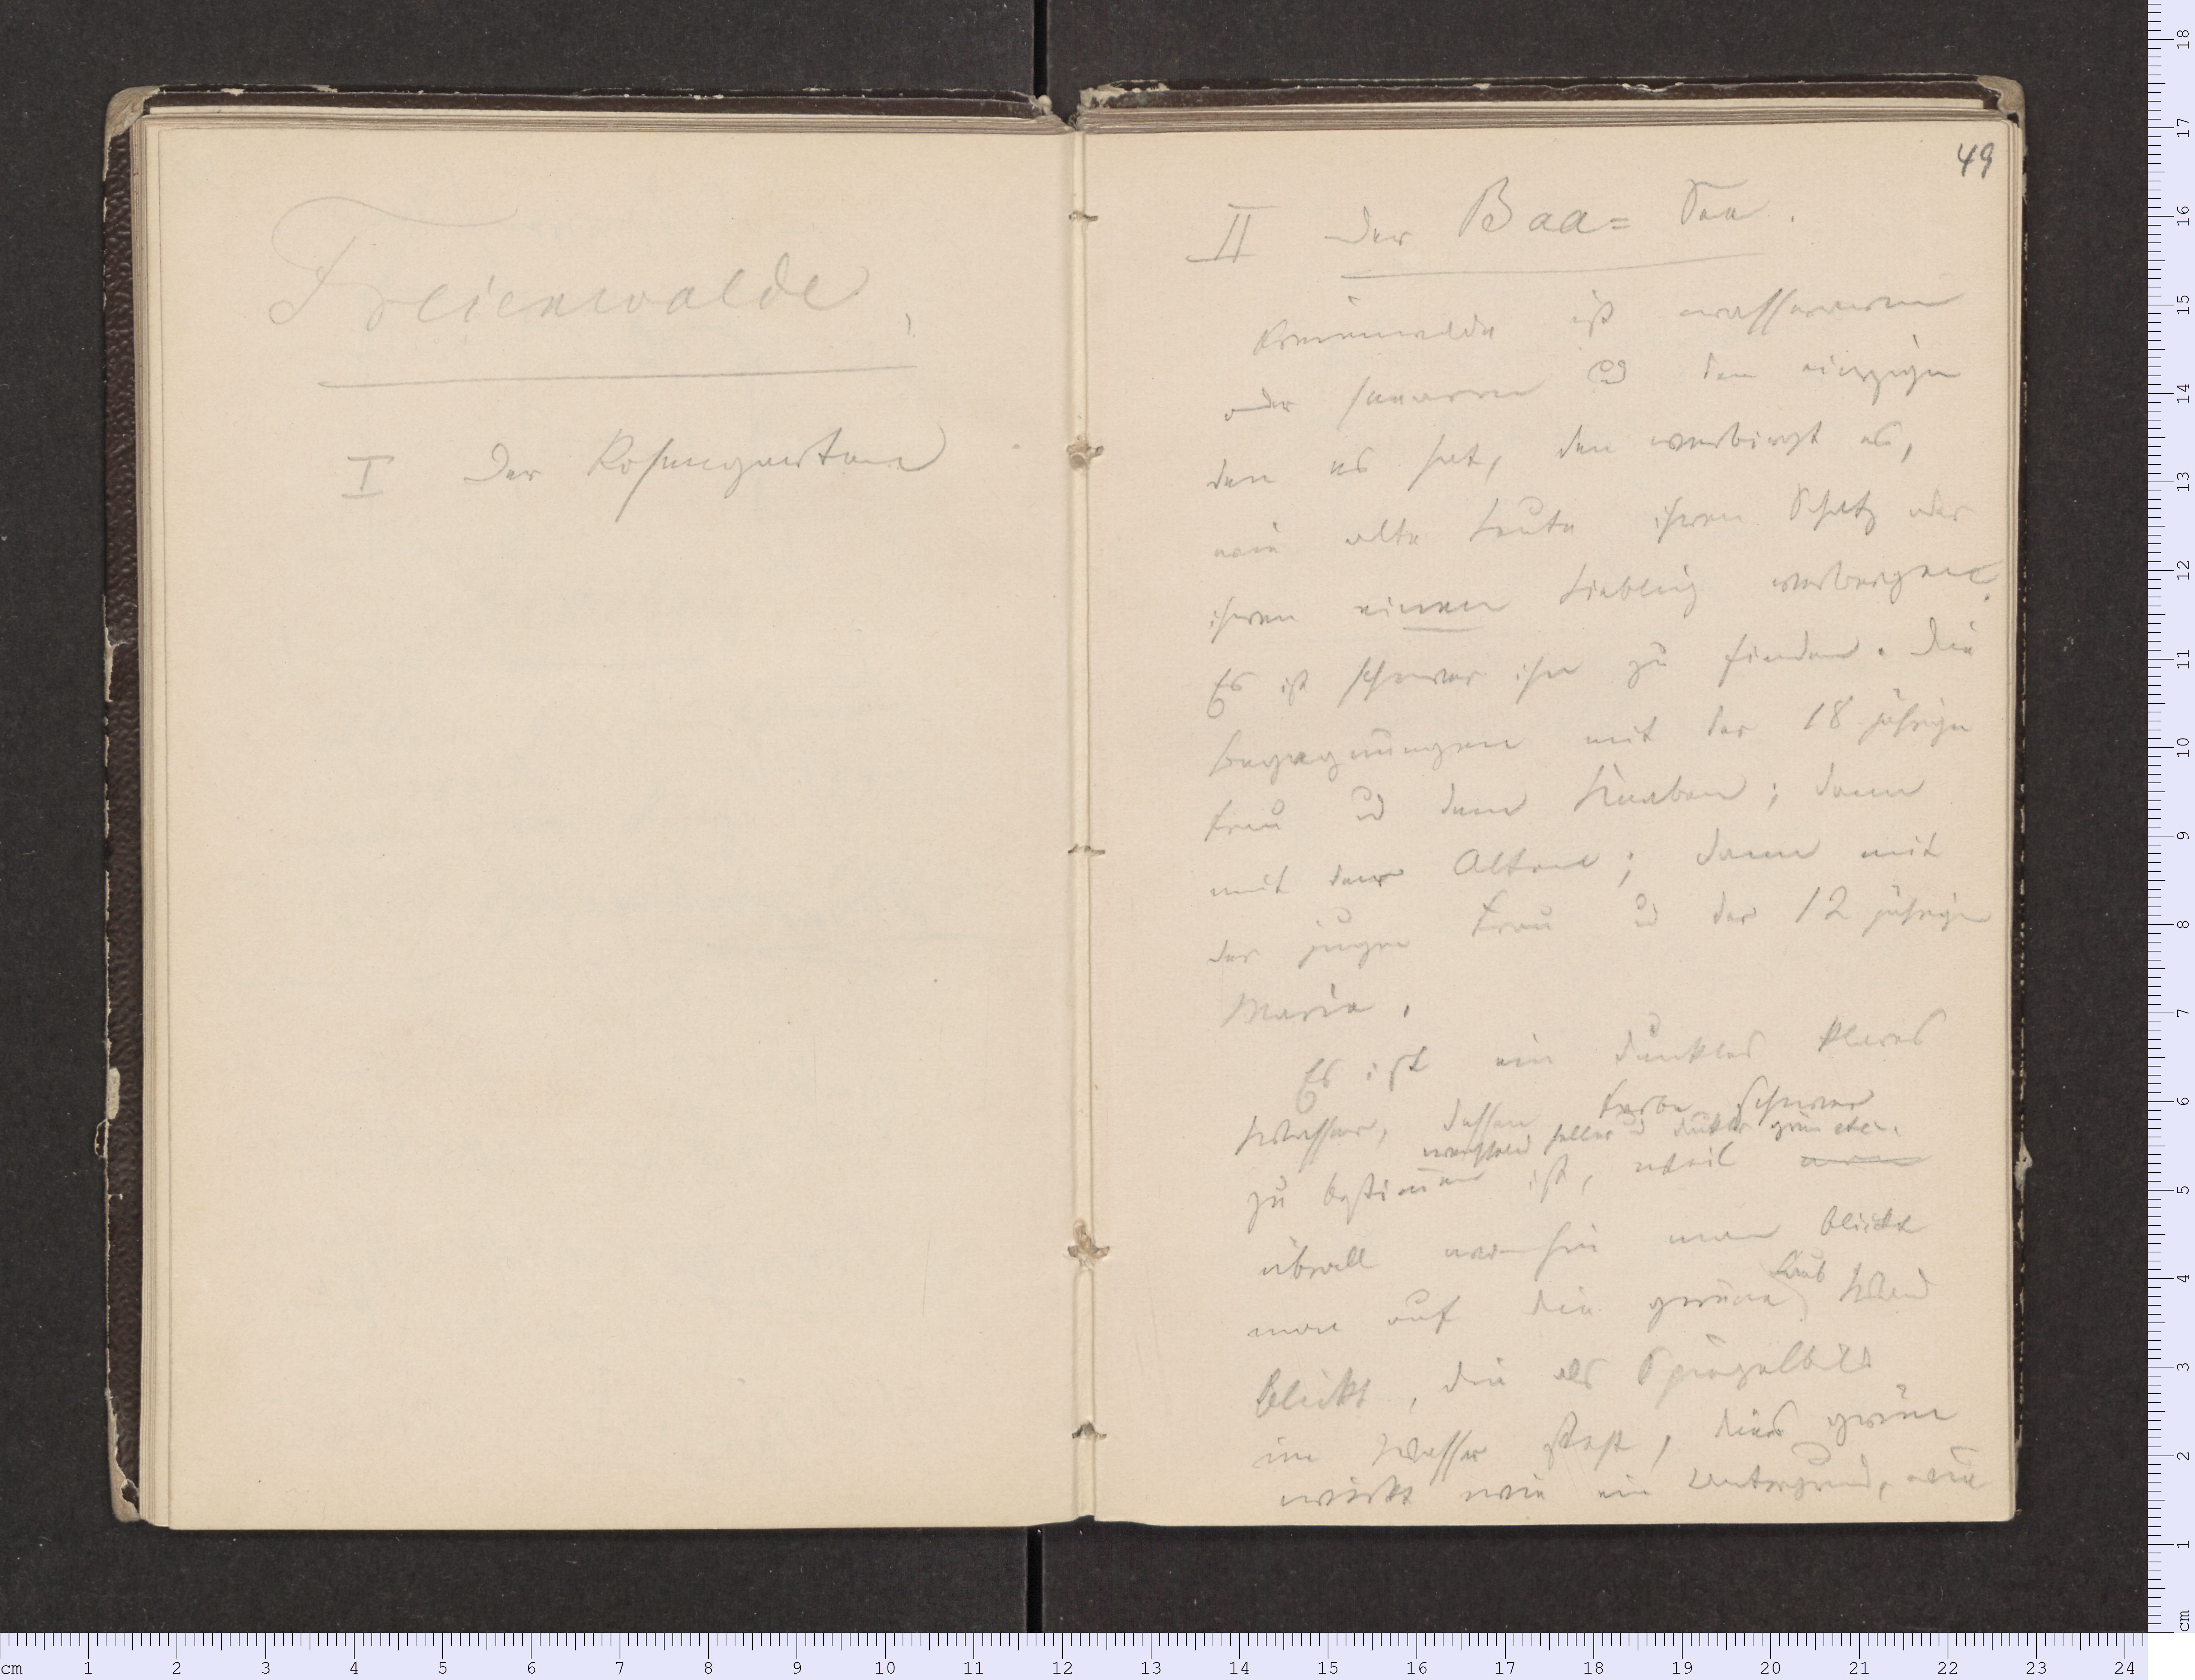 Freienwalde,
I Der Rosengarten
49
II Der Baa= See.
Freienwalde ist wasserarm
oder seearm ud den einzigen
den es hat, den verbirgt es,
wie alte Leute ihren Schatz oder
ihren einen Liebling verbergen.
Es ist schwer ihn zu finden. Die
Begegnungen mit der 18 jährigen
Frau ud dem Knaben; dann
mit dem Alten; dann mit
der jungen Frau ud der 12 jährigen
Marie.
Es ist ein dunkles klares
Wasser, dessen Farbe schwer
wechselnd heller u dunkler grün etc.
zu bestimmen ist, weil
überall wohin man blickt
Laub
man auf die grüne Wand
blickt, die als Spiegelbild
im Wasser steht, dies grün
wirkt wie ein Untergrund, wie